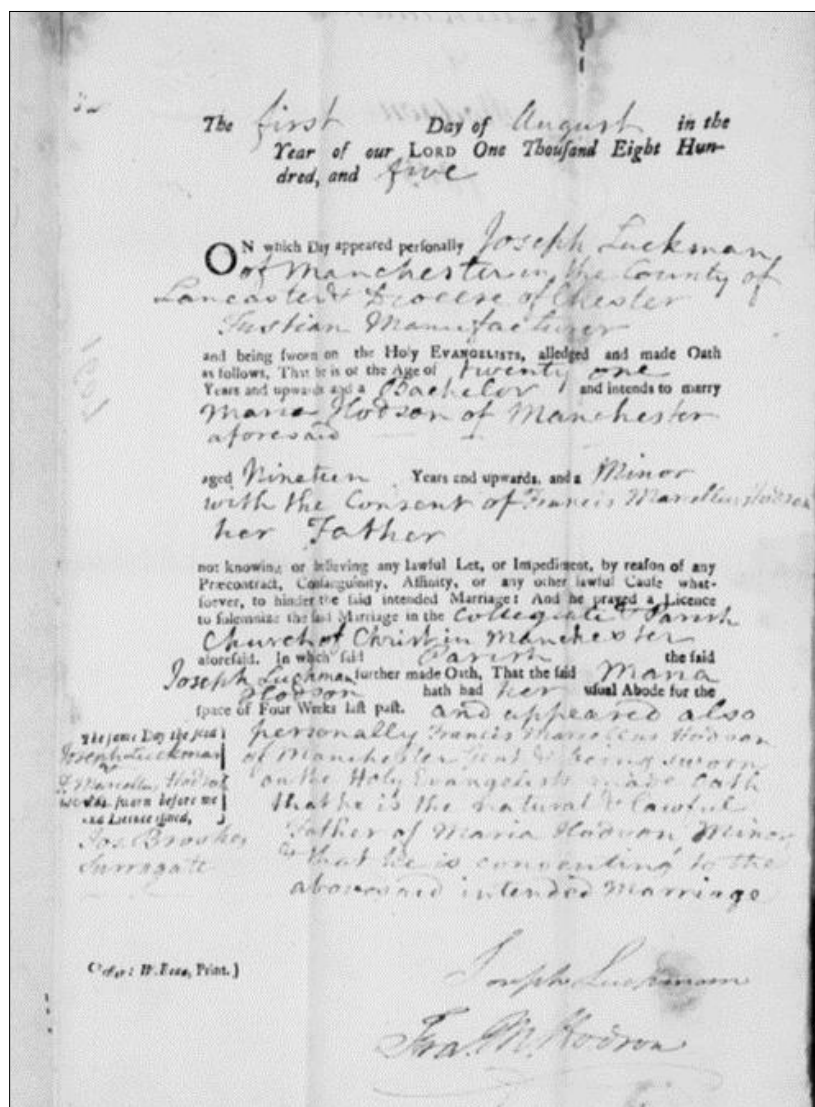 The first Day of August in the
Year of our LORD One Thousand Eight Hun-
dred, and five
ON which Day appeared personally Joseph Luckman
of Manchester in the County of
Lancaster & Diocese of Chester
Fustian Manufacturer
and being sworn on the Holy EVANGELISTS, alledged and made Oath
as follows, That he is of the Age of twenty one
Years and upwards and a Bachelor and intends to marry
Maria Hodson of Manchester
aforesaid
aged Nineteen Years and upwards, and a Minor
with the Consent of Francis Marcellus Hodson
her Father
not knowing or believing any lawful Let, or Impediment, by reason of any
Præcontract, Consanguinity, Affinity, or any other lawful Cause what-
soever, to hinder the said intended Marriage: And he prayed a Licence
to solemnize the said Marriage in the Collegiate & Parish
Church of Christ in Manchester
aforesaid. In which said Parish the said
Joseph Luckman further made Oath, That the said Maria
Hodson hath had her usual Abode for the
space of Four Weeks last past. and appeared also
personally Francis Marcellus Hodson
of Manchester Gent & being sworn
on the Holy Evangelists made Oath
that he is the natural & lawful
Father of Maria Hodson Minor
& that he is consenting to the
abovesaid intended Marriage
The same Day the said
Joseph Luckman
& F Marcellus Hodson
were sworn before me
and Licence issued,
Jos Brookes
Surrogate
Joseph Luckman
Fra. M. Hodson
W. Print.)